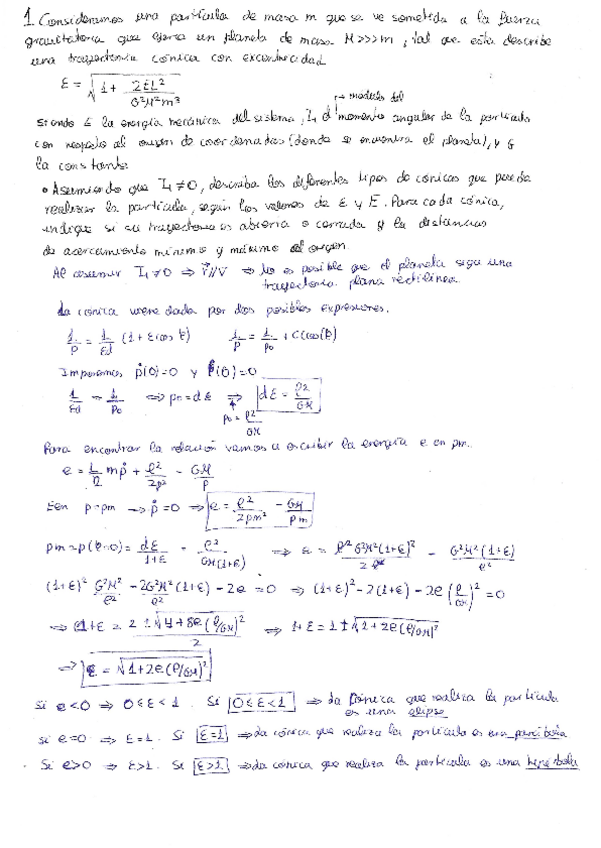 1. Consideramos una partícula de masa m que se ve sometida a la fuerza
gravitatoria que ejerce un planeta de masa M>>>m, tal que esta describe
una trayectoria cónica con excentricidad
ε = √(1 + 2EL²/G²M²m³)
→ modulo del
siendo E la energía mecánica del sistema, L el momento angular de la partícula
con respecto al origen de coordenadas (donde se encuentra el planeta), y G
la constante
• Asumiendo que L ≠ 0, describa los diferentes tipos de cónicas que puede
realizar la partícula, según los valores de ε y E. Para cada cónica,
indique si su trayectoria es abierta o cerrada y la distancias
de acercamiento mínimo y máximo al origen.
Al asumir L ≠ 0 ⇒ r⃗ // V ⇒ No es posible que el planeta siga una
trayectoria plana rectilínea.
La cónica viene dada por dos posibles expresiones.
1/ρ = 1/εd (1+εcos θ)   1/ρ = 1/ρ₀ + C cos(θ)
Imponemos ρ̇(0)=0 y θ(0)=0
1/εd = 1/ρ₀ ⇒ ρ₀ = dε ⇒ dε = ℓ²/GM
ρ₀ = ℓ²/GM
Para encontrar la relación vamos a escribir la energía e en ρm.
e = 1/2 mρ̇ + ℓ²/2ρ² - GM/ρ
E en ρ=ρm → ρ̇ = 0 ⇒ e = ℓ²/2ρm² - GM/ρm
ρm = ρ(θ=0) = dε/1+ε = ℓ²/GM(1+ε) ⇒ e = ℓ²G²M²(1+ε)²/2ℓ⁴ - G²M²(1+ε)/ℓ²
(1+ε)² G²M²/ℓ² - 2G²M²(1+ε)/ℓ² - 2e = 0 ⇒ (1+ε)² - 2(1+ε) - 2e(ℓ/GM)² = 0
⇒ 1+ε = 2 ± √4+8e(ℓ/GM)²/2 ⇒ 1+ε = 1 ± √1+2e(ℓ/GM)²
⇒ ε = √1+2e(ℓ/GM)²
Si e<0 ⇒ 0≤ε<1. Si 0≤ε<1 ⇒ La cónica que realiza la partícula
es una elipse
Si e=0 ⇒ ε=1. Si ε=1 ⇒ La cónica que realiza la partícula es una parábola
Si e>0 ⇒ ε>1. Si ε>1 ⇒ La cónica que realiza la partícula es una hipérbola